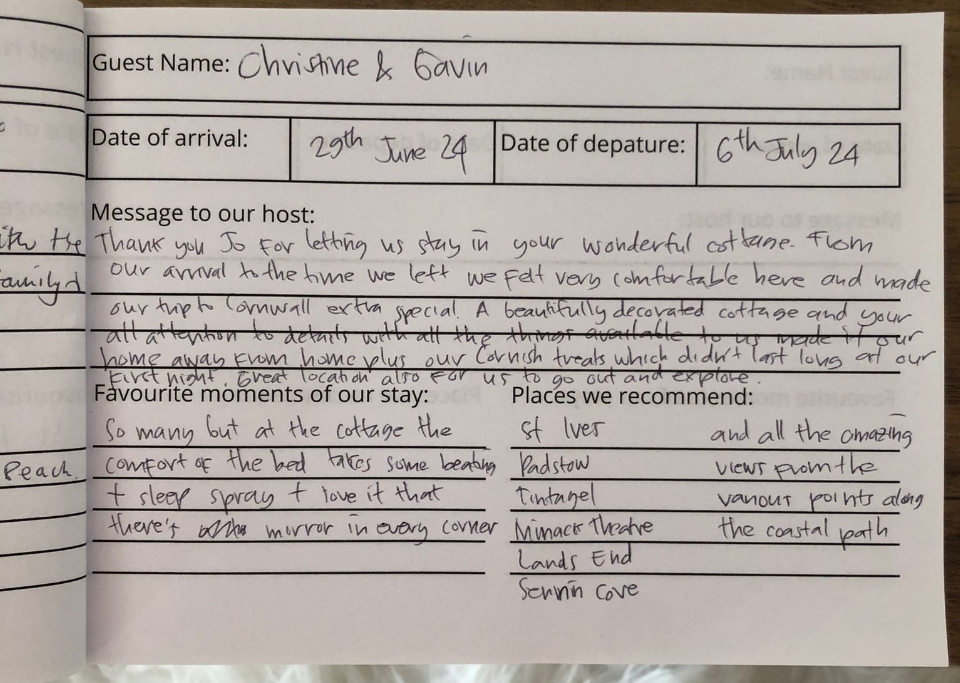 Guest Name: Christine & Gavin
Date of arrival: 29th June 24 Date of depature: 6th July 24
Message to our host:
Thank you Jo for letting us stay in your wonderful cottage. From
our arrival to the time we left we felt very comfortable here and made
our trip to Cornwall extra special. A beautifully decorated cottage and your
all attention to details with all the things available to us made it our
home away from home plus our Cornish treats which didn't last long at our
first night. Great location also for us to go out and explore.
Favourite moments of our stay:
So many but at the cottage the
comfort of the bed takes some beating
+ sleep spray + love it that
there's mirror in every corner
Places we recommend:
St Ives
Padstow
Tintagel
Minack Theatre
Lands End
Sennin Cove
and all the amazing
views from the
various points along
the coastal path
with the
family +
Peach.